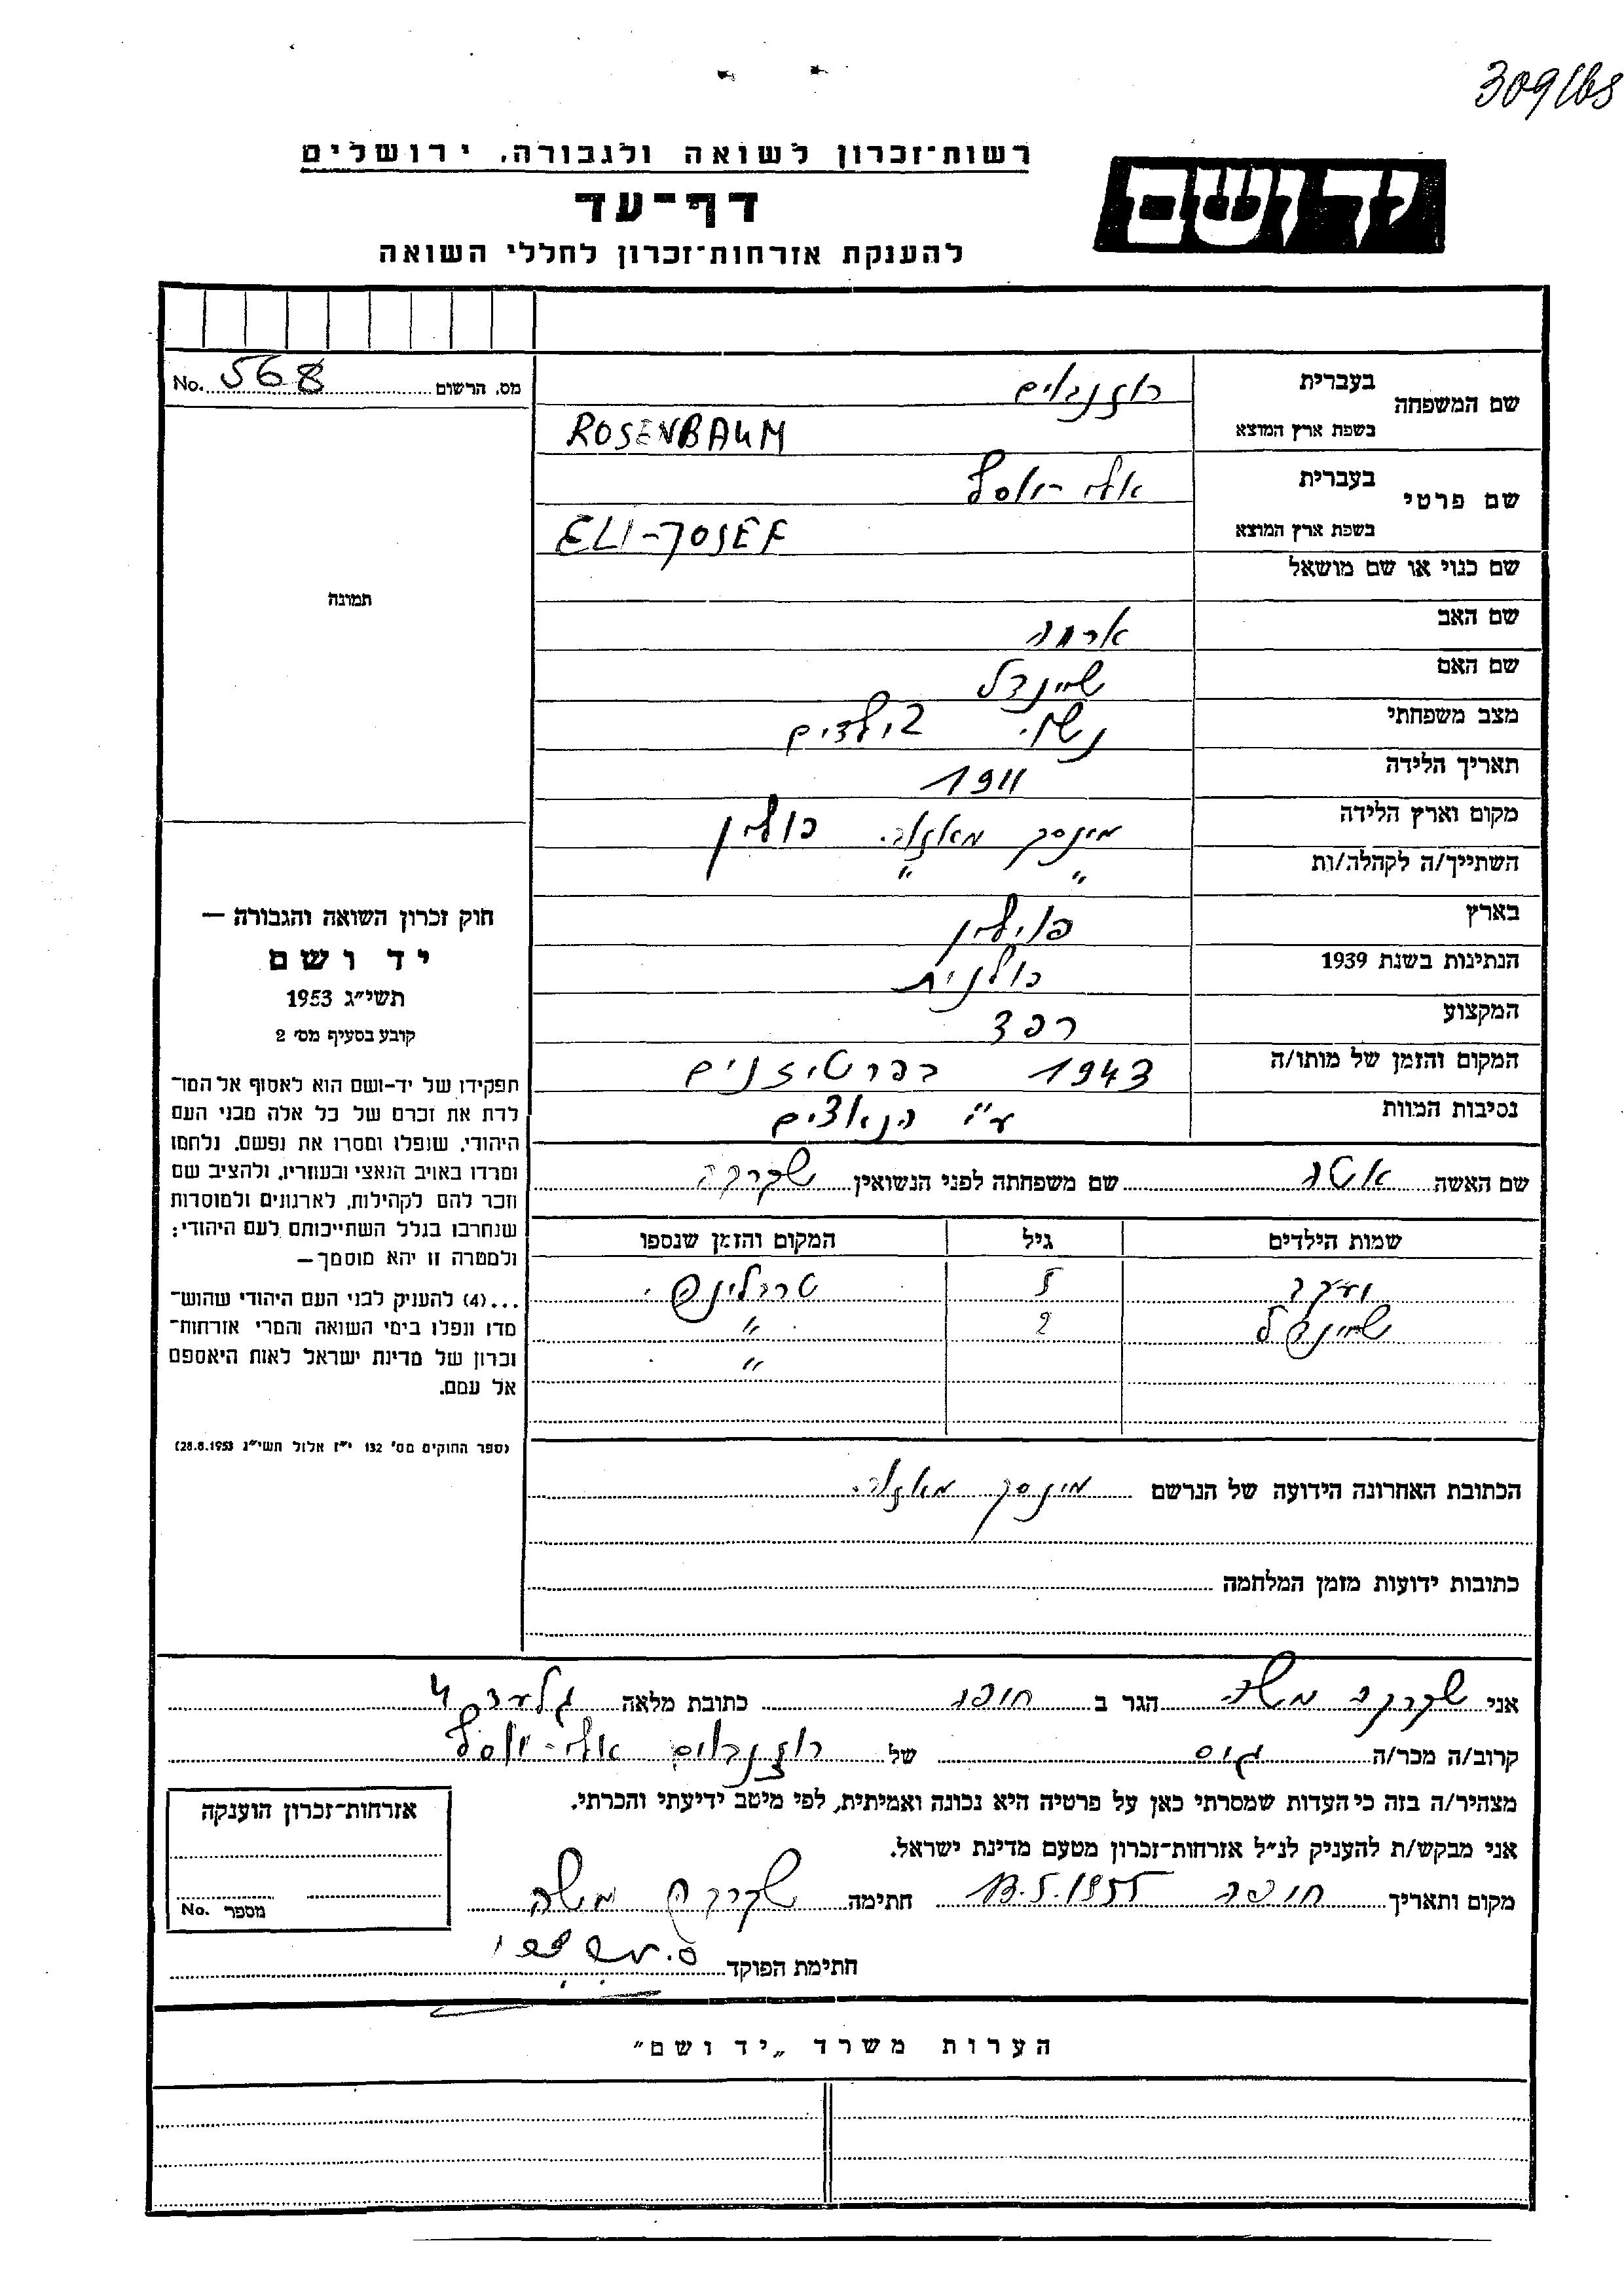 309/168
רשות־זכרון לשואה ולגבורה, ירושלים
יד ושם
דף־עד
להענקת אזרחות־זכרון לחללי השואה
No. 568 מס. הרשום
שם המשפחה
בעברית רוזנבוים
בשפת ארץ המוצא ROSENBAUM
שם פרטי
בעברית אלי-יוסף
בשפת ארץ המוצא ELI-JOSEF
תמונה
שם כנוי או שם מושאל
שם האב
שם האם שיינדל
מצב משפחתי נשוי 2 ילדים
תאריך הלידה 1911
מקום וארץ הלידה מינסק מאזוב. פולין
השתייך/ה לקהלה/ות " "
בארץ פוילין
הנתינות בשנת 1939 פולנית
המקצוע רפד
המקום והזמן של מותו/ה 1943 בפרטיזנים
נסיבות המוות ע"י הנאצים
שם האשה שם משפחתה לפני הנשואין
שמות הילדים גיל המקום והזמן שנספו
יעקב 5 טרבלינקה
שיינדל 2 "
"
הכתובת האחרונה הידועה של הנרשם מינסק מאזוב.
כתובות ידועות מזמן המלחמה
חוק זכרון השואה והגבורה —
יד ושם
תשי״ג 1953
קובע בסעיף מס׳ 2
תפקידו של יד-ושם הוא לאסוף אל המו־
לדת את זכרם של כל אלה מבני העם
היהודי, שנפלו ומסרו את נפשם, נלחמו
ומרדו באויב הנאצי ובעוזריו, ולהציב שם
וזכר להם לקהילות, לארגונים ולמוסדות
שנחרבו בגלל השתייכותם לעם היהודי;
ולמטרה זו יהא מוסמך—
...(4) להעניק לבני העם היהודי שהוש־
מדו ונפלו בימי השואה והמרי אזרחות־
זכרון של מדינת ישראל לאות היאספם
אל עמם.
(ספר החוקים מס׳ 132 י״ז אלול תשי״ג 28.8.1953)
אני משה הגר ב חיפה כתובת מלאה גלעד 4
קרוב/ה מכר/ה גיס של רוזנבוים אלי-יוסף
מצהיר/ה בזה כי העדות שמסרתי כאן על פרטיה היא נכונה ואמיתית, לפי מיטב ידיעתי והכרתי.
אני מבקש/ת להעניק לנ״ל אזרחות־זכרון מטעם מדינת ישראל.
מקום ותאריך חיפה 13.5.1955 חתימה משה
חתימת הפוקד
אזרחות־זכרון הוענקה
No. מספר
הערות משרד „יד ושם״